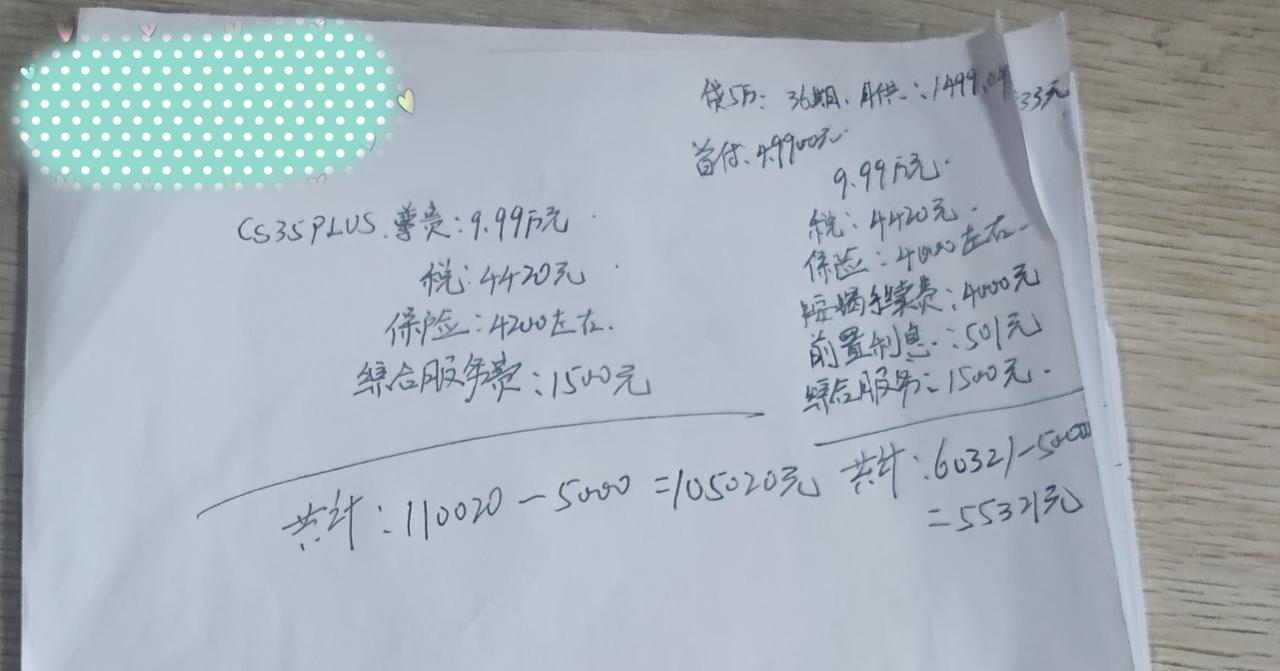 贷5万: 36期、月供:1499.04 33元
首付、49900元
9.99万元
税:4420元
保险:4000左右
手续费:4000元
前置利息:501元
综合服务:1500元
共计:60321-5000
=55321元
CS35PLUS、尊贵:9.99万元
税:4420元
保险:4200左右.
综合服务费:1500元
共计:110020-5000=105020元